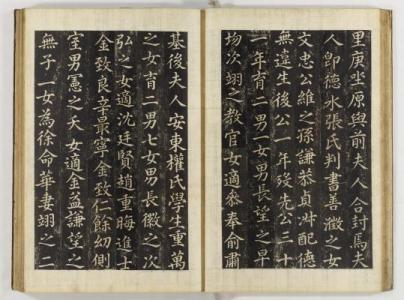 里庚坐原與前夫人合封焉夫
人卽德水張氏判書善澂之女
文忠公維之孫謙恭貞淑配德
無違生後公一年歿先公三十
一年育二男一女男長望之昇
均次翊之教官女適叅奉俞肅
基後夫人安東權氏學生重萬
之女育二男七女男長徽之次
弘之女適沈廷賢趙重晦進士
金致良辛最寧金致仁餘幼側
室男憲之天女適金益謙望之
無子一女為徐命華妻翊之二